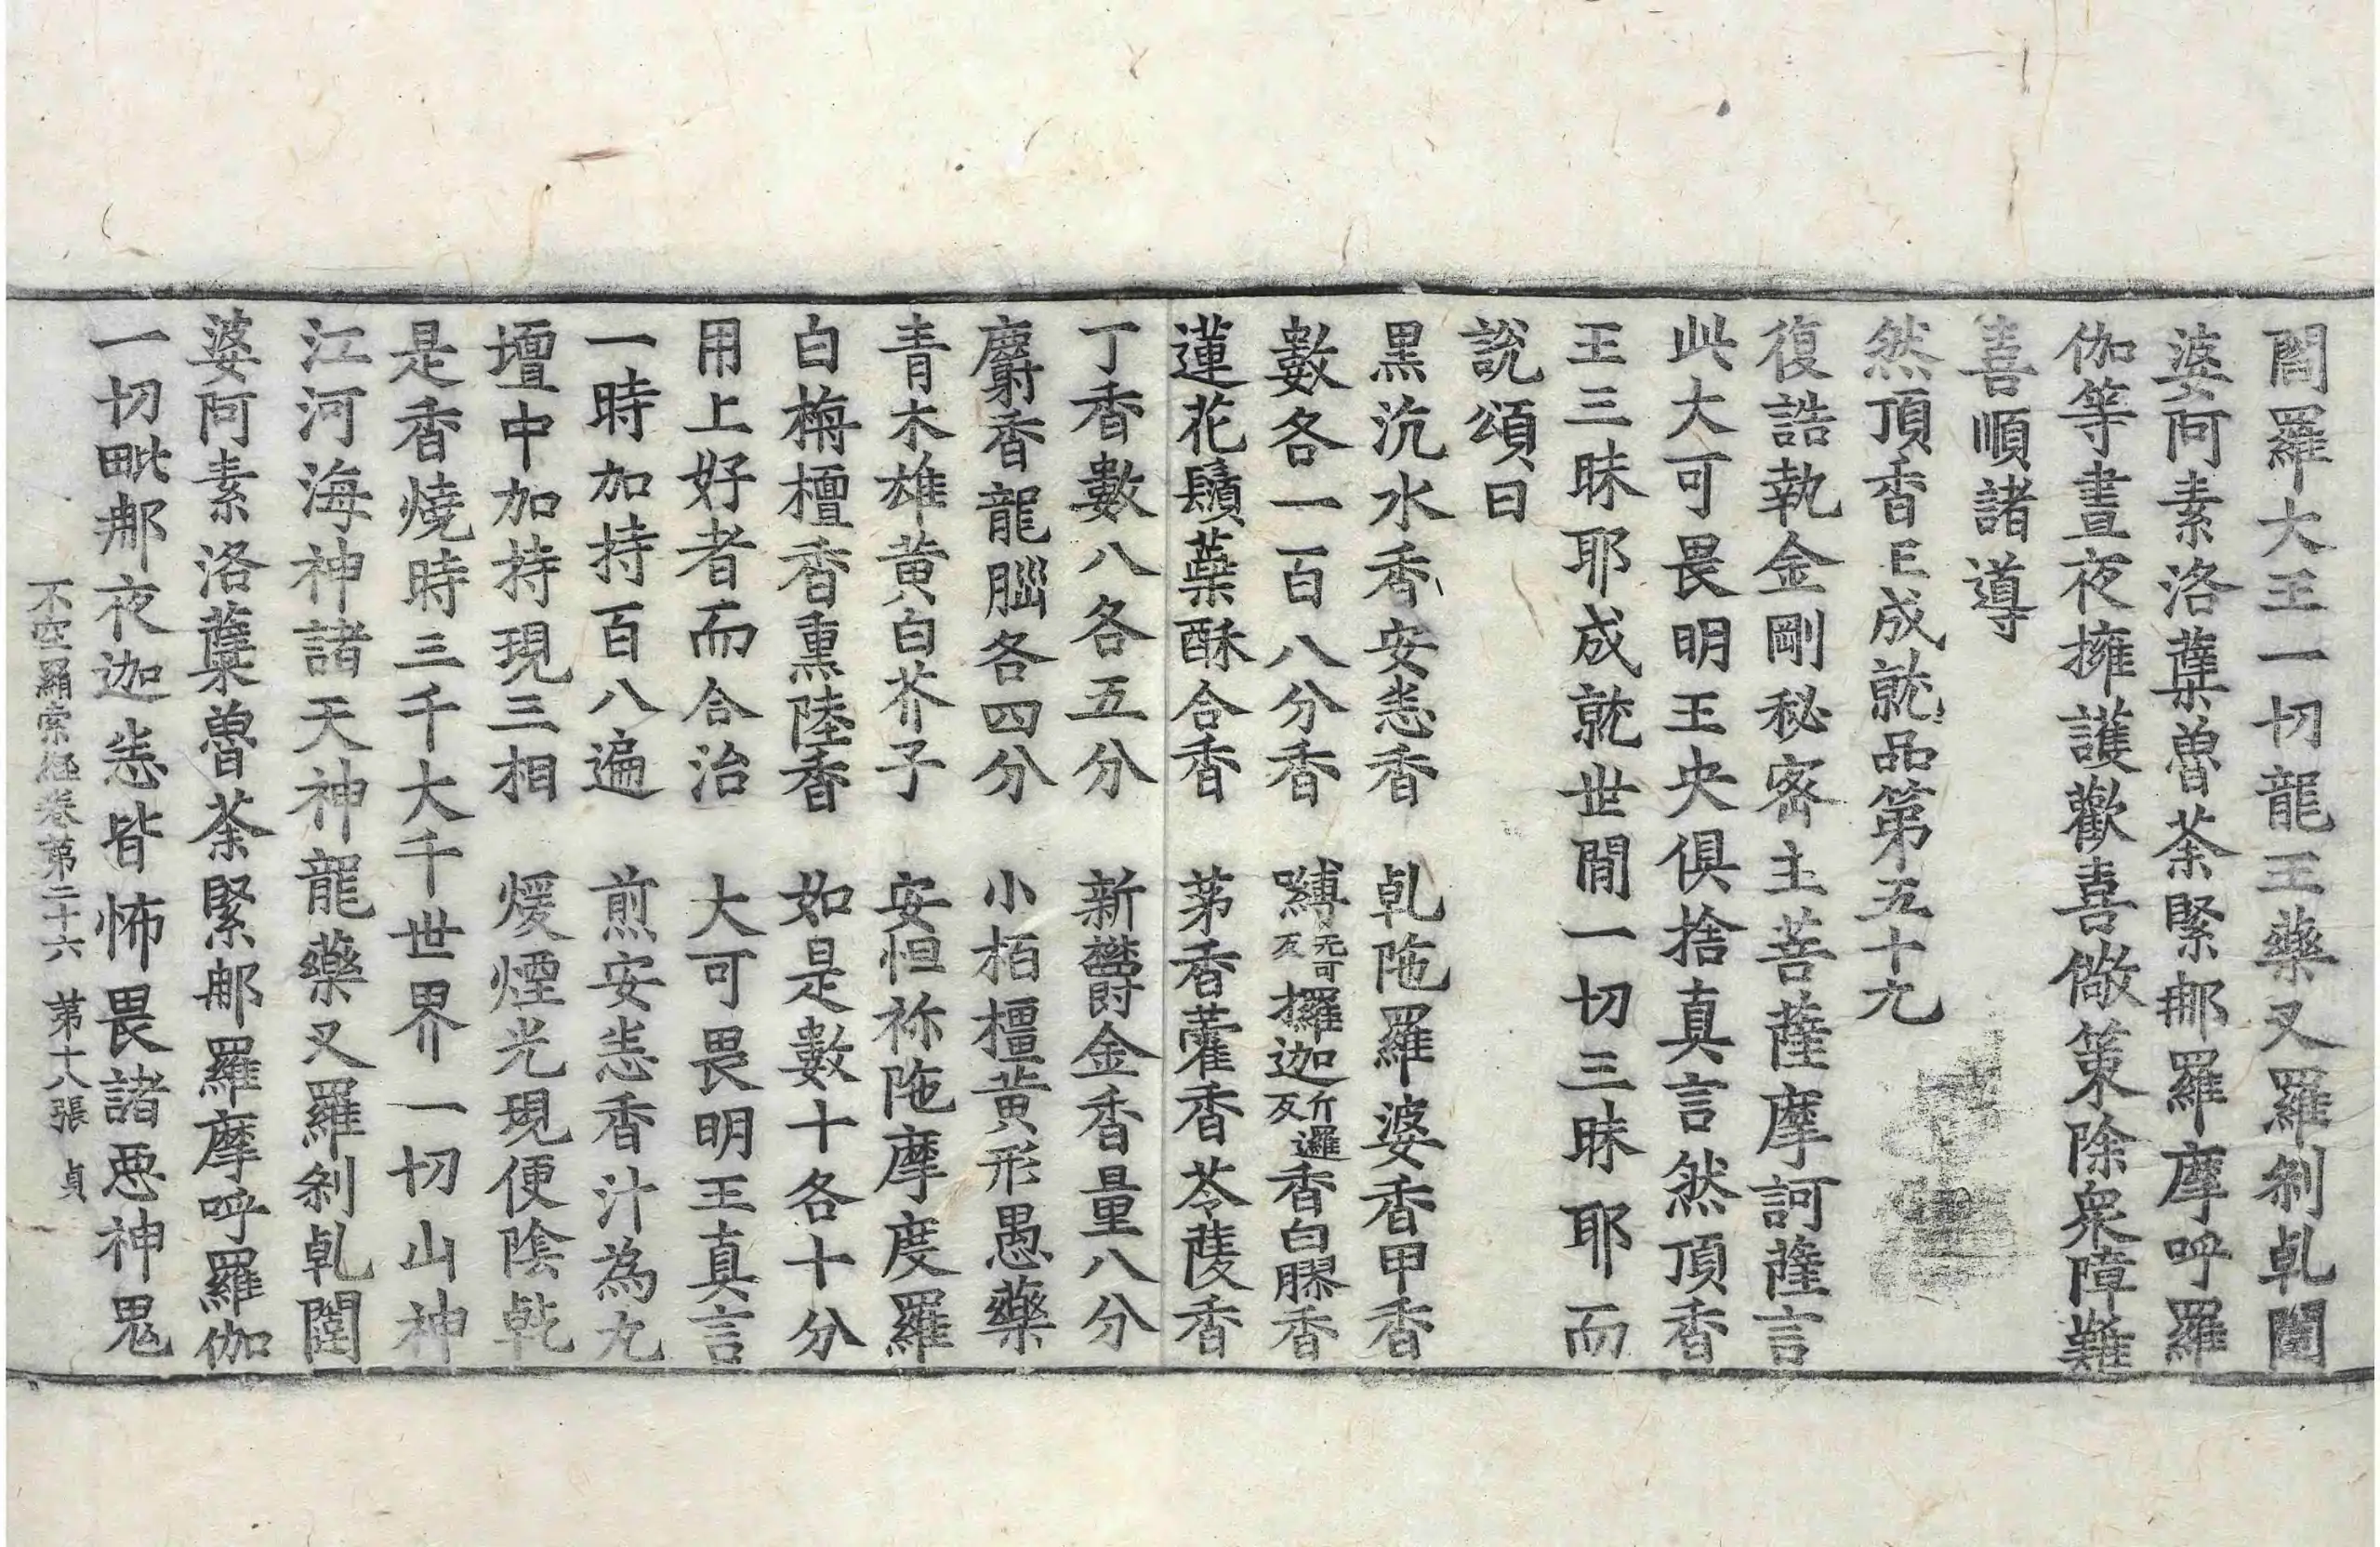 閻羅大王一切龍王藥叉羅剎乹闥
婆阿素洛蘖魯荼緊那羅摩呼羅
伽等晝夜擁護歡喜儆策除衆障難
喜順諸導
然頂香王成就品第五十九
復誥執金剛秘密主菩薩摩訶薩言
此大可畏明王央俱捨真言然頂香
王三昧耶成就世間一切三昧耶而
說頌曰
黒沉水香安悉香 乹陁羅婆香甲香
數各一百八分香 嚩无可反攞迦斤邏反香白膠香
蓮花鬚蘗酥合香 茅香藿香苓陵香
丁香數八各五分 新欝金香量八分
麝香龍腦各四分 小栢檀黃形愚藥
青木雄黄白芥子 安怛祢陁摩度羅
白栴檀香熏陸香 如是數十各十分
用上好者而合治 大可畏明王真言
一時加持百八遍 煎安悉香汁為丸
壇中加持現三相 煖煙光現便陰乾
是香燒時三千大千世界一切山神
江河海神諸天神龍藥叉羅剎乹闥
婆阿素洛蘖魯荼緊那羅摩呼羅伽
一切毗那夜迦悉皆怖畏諸惡神鬼
不空羂索經卷第二十六 第十八張 貞